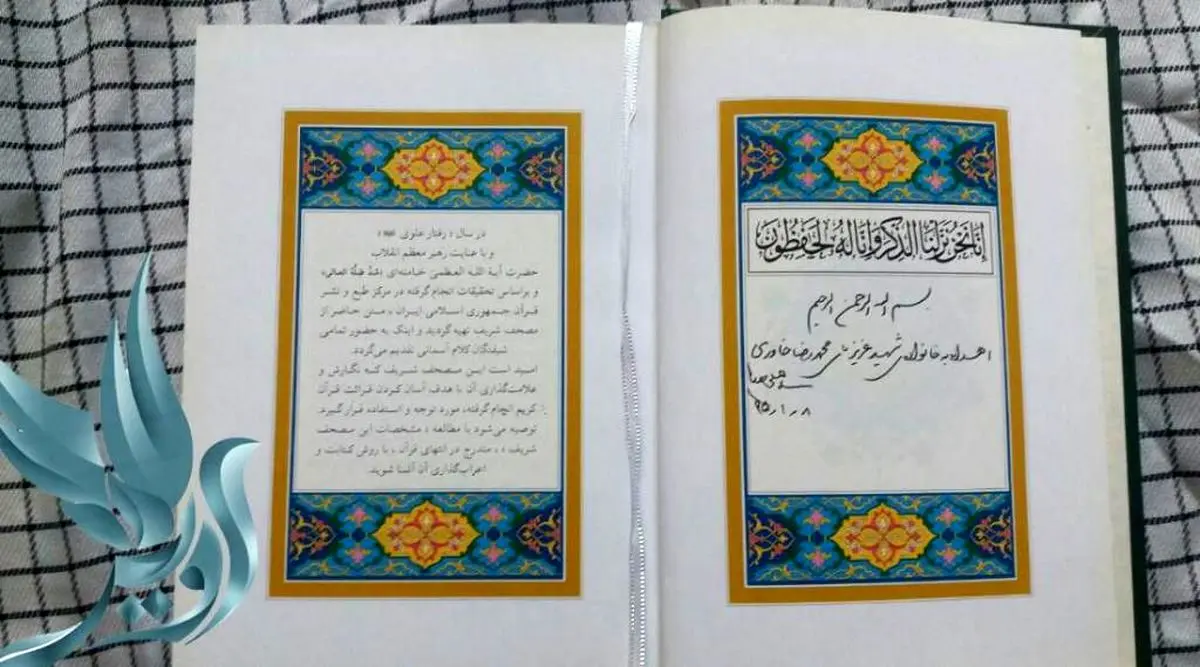 إنا نحن نزلنا الذكر وإنا له لحفظون
بسم الله الرحمن الرحیم
اهداء به خانواده‌ی شهید عزیز محمدرضا خاوری
۹۵/۱/۰۸
در سال « رفتار علوی »
و با عنایت رهبر معظم انقلاب
حضرت آیة الله العظمی خامنه‌ای (مدّ ظلّه العالی)
و براساس تحقیقات انجام گرفته در مرکز طبع و نشر
قرآن جمهوری اسلامی ایران، متن حاضر از
مصحف شریف تهیه گردید و اینک به حضور تمامی
شیفتگان کلام آسمانی تقدیم می‌گردد.
امید است این مصحف شریف که نگارش و
علامت‌گذاری آن با هدف آسان کردن قرائت قرآن
کریم انجام گرفته، مورد توجه و استفاده قرار گیرد.
توصیه می‌شود با مطالعه « مشخصات این مصحف
شریف »، مندرج در انتهای قرآن، با روش کتابت و
اعراب‌گذاری آن آشنا شوید.